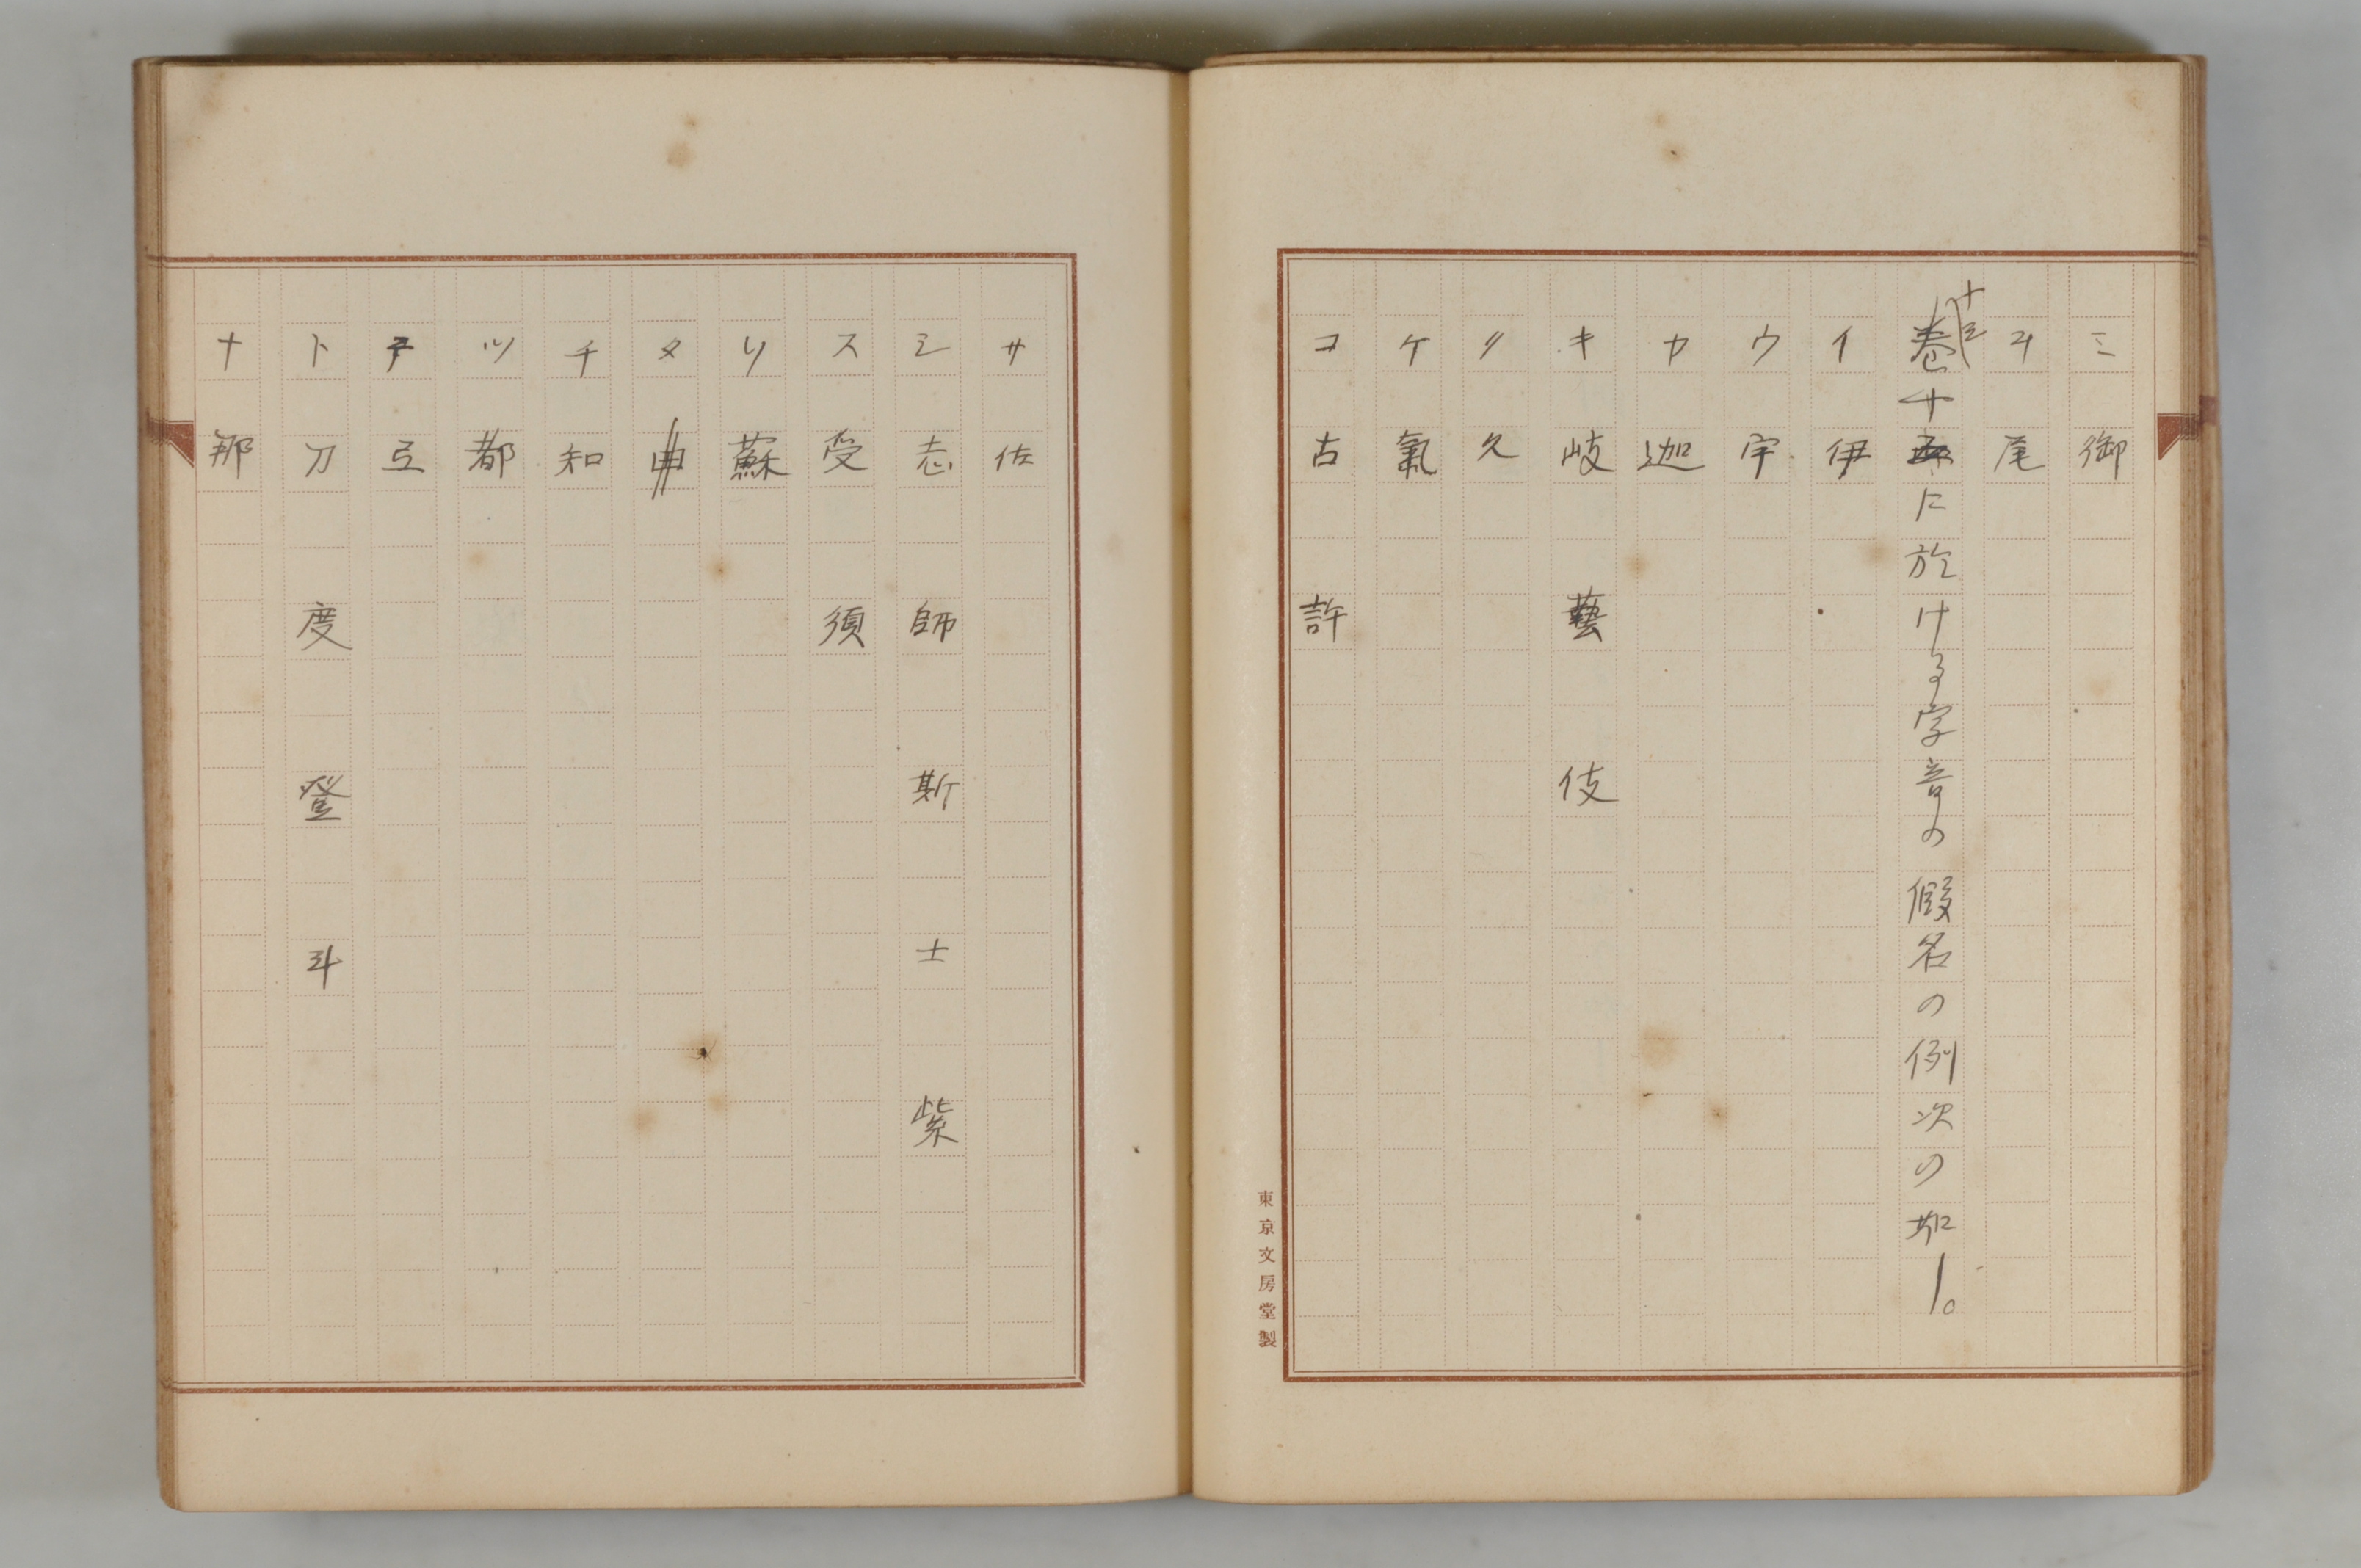 ミ 御
ヲ 尾
巻十に於ける字音の假名の例次の如し。
イ 伊
ウ 宇
カ 迦
キ 岐 藝 伎
ク 久
ケ 氣
コ 古 許
東京文房堂製
サ 佐
シ 志 師 斯 士 紫
ス 受 須
ソ 蘇
タ
チ 知
ツ 都
テ 弖
ト 刀 度 登 斗
ナ 那